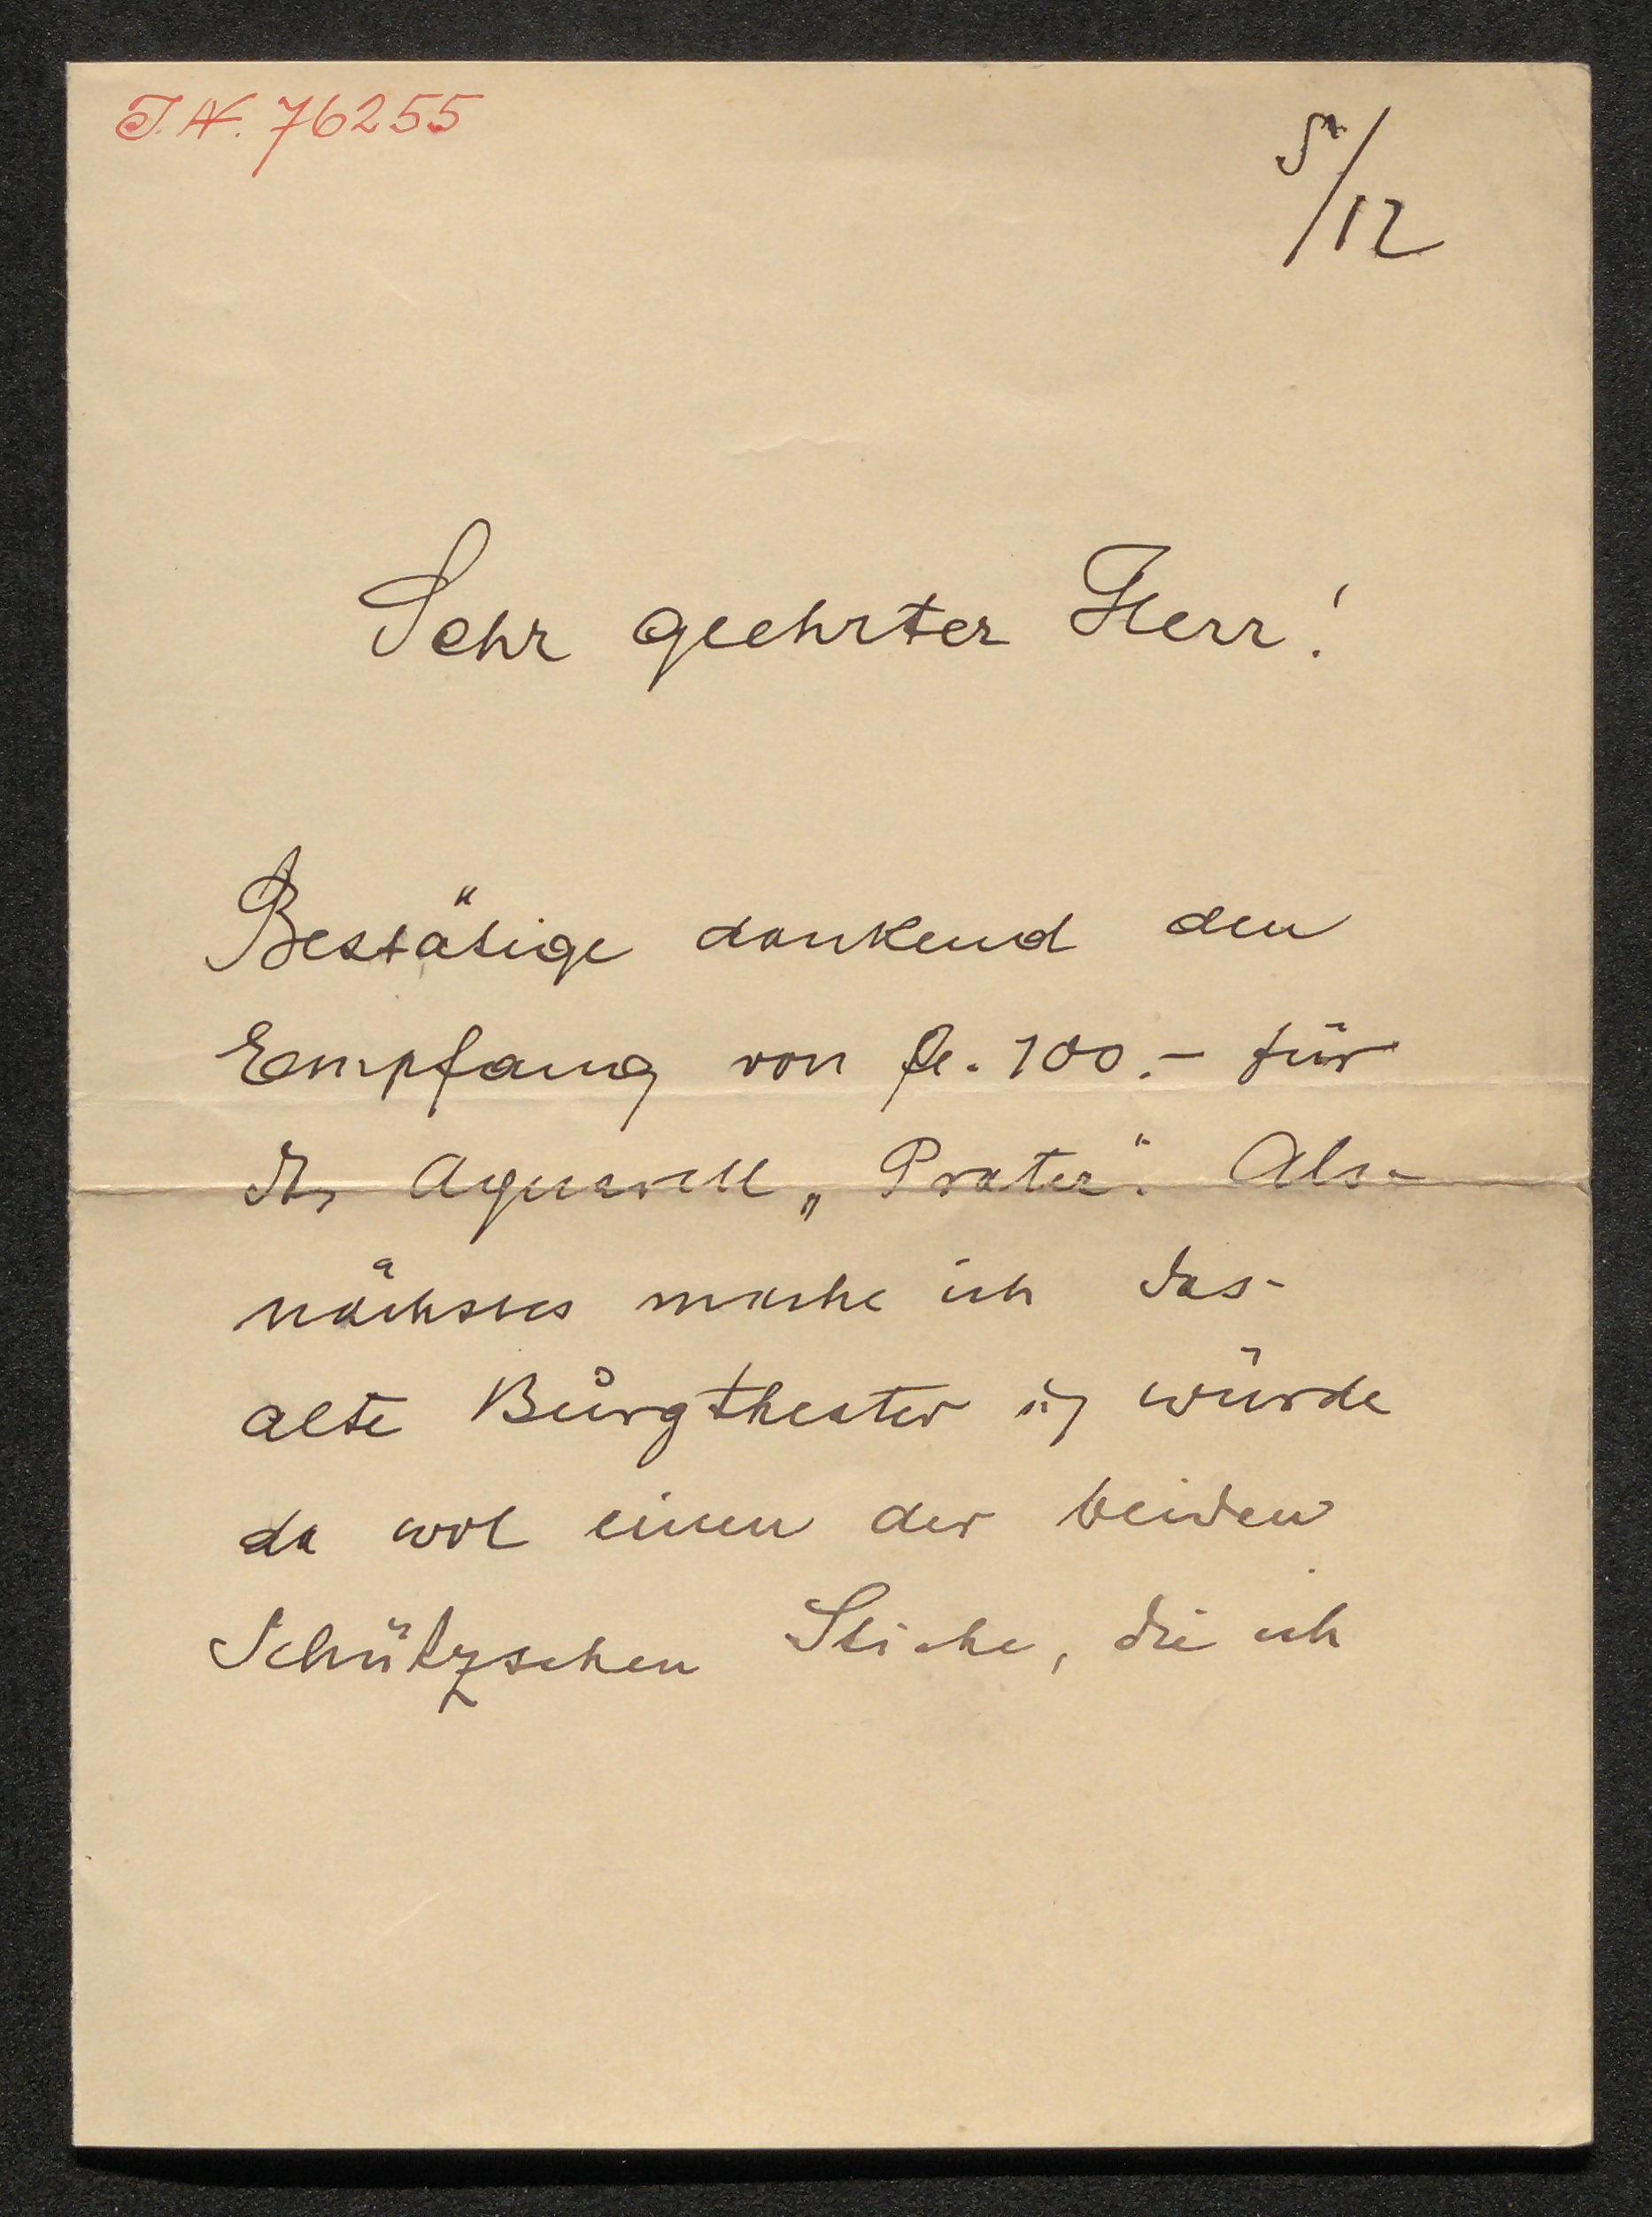 I.N. 76255
5/12
Sehr geehrter Herr!
Bestätige dankend den
Empfang von fl. 100.- für
das Aquarell „Prater“. Als-
nächstes mache ich das-
alte Burgtheater u würde
da wol einen der beiden
Schützschen Stiche, die ich